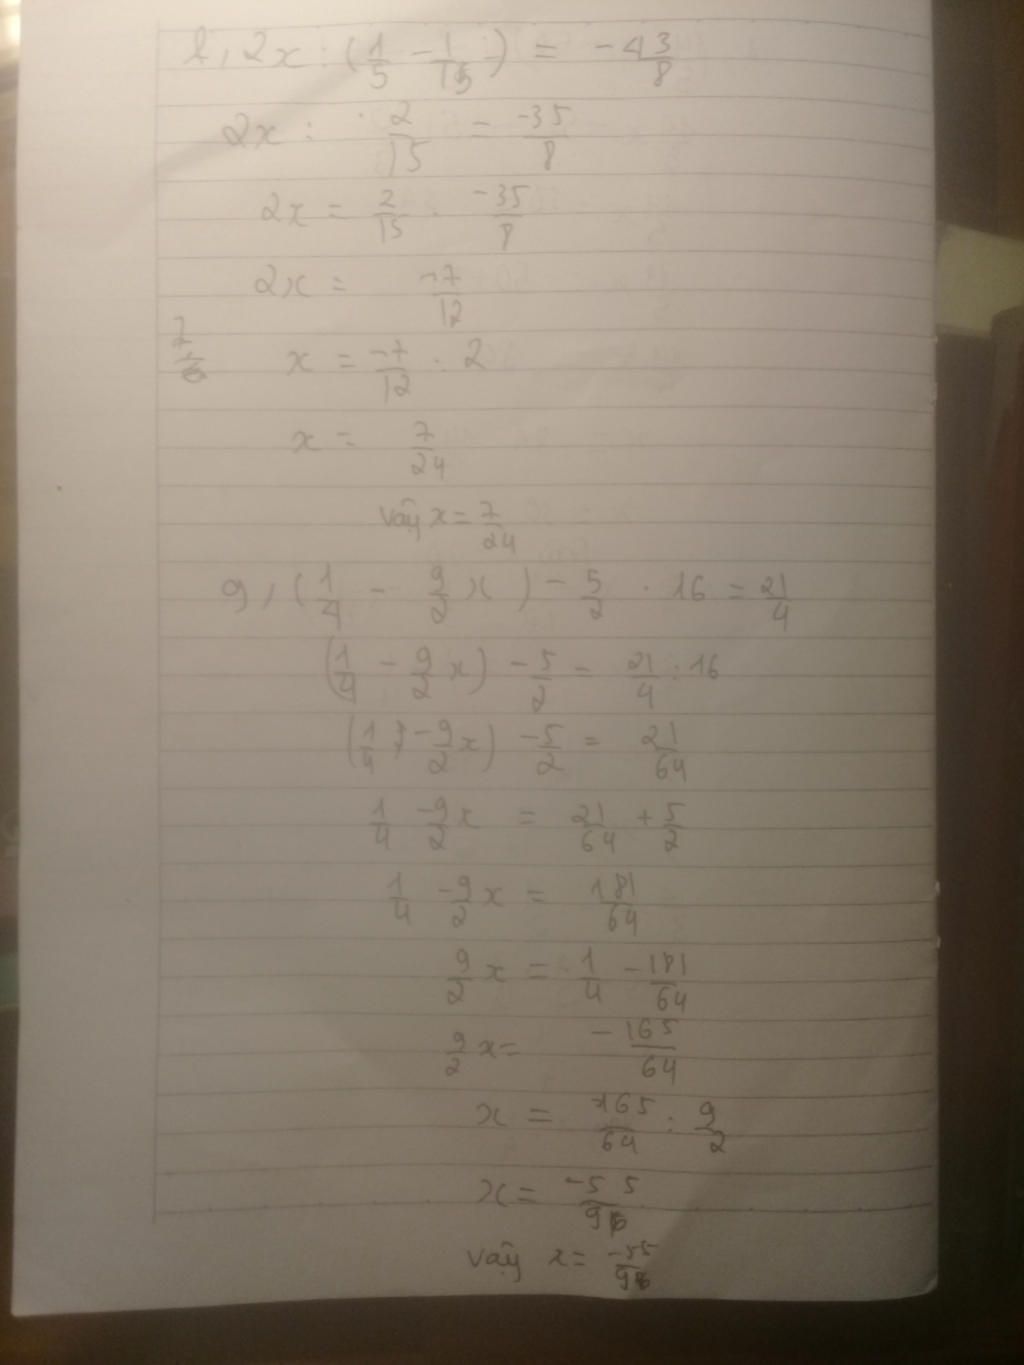 2x : (1/5 - 1/15) = -4 3/8
2x : 2/15 = -35/8
2x = 2/15 . -35/8
2x = -7/12
7/6 x = -7/12 : 2
x = 7/24
vậy x = 7/24
9, (1/4 - 9/2 x) - 5/2 . 16 = 21/4
(1/4 - 9/2 x) - 5/2 = 21/4 : 16
(1/4 - 9/2 x) - 5/2 = 21/64
1/4 - 9/2 x = 21/64 + 5/2
1/4 - 9/2 x = 181/64
9/2 x = 1/4 - 181/64
9/2 x = -165/64
x = -165/64 : 9/2
x = -55/96
vậy x = -55/96